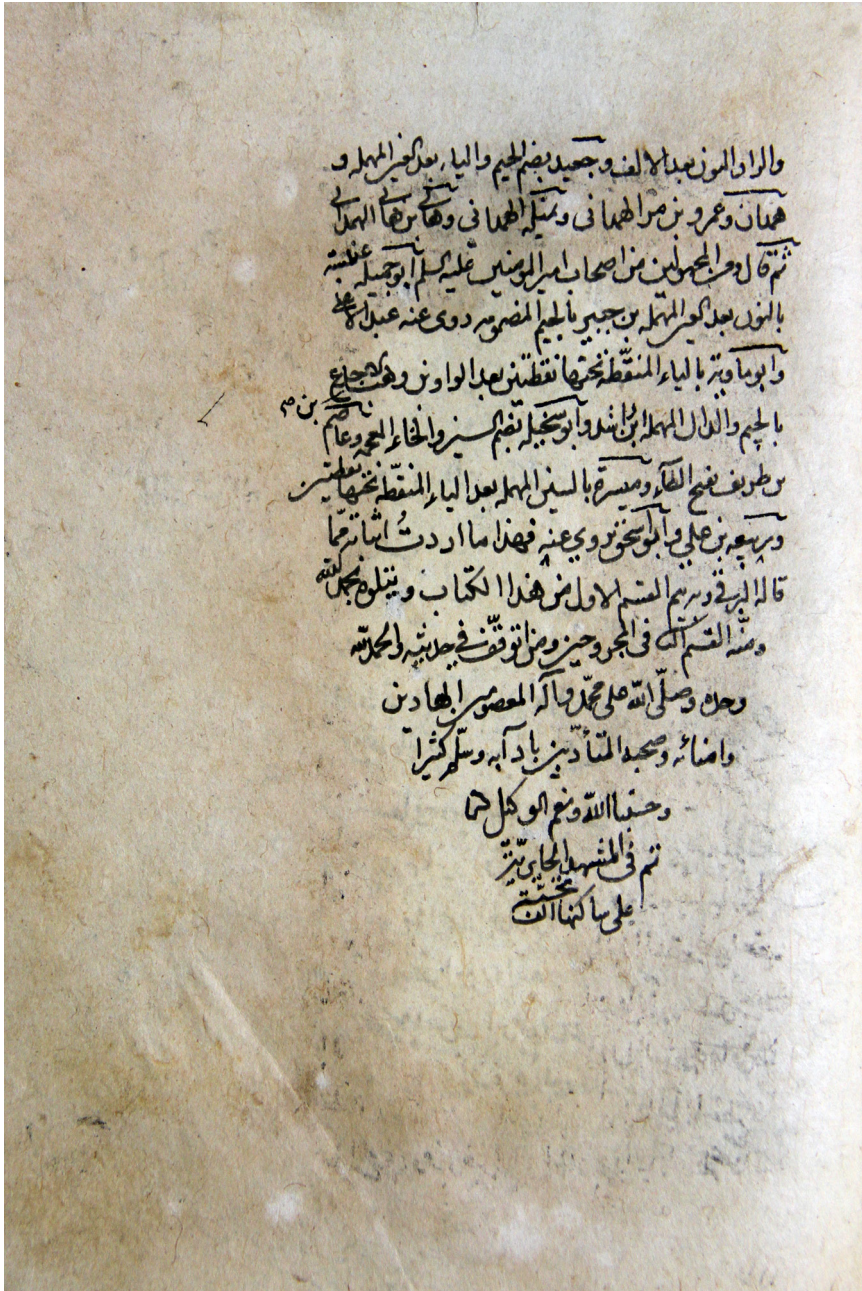 والواو والنون بعد الالف وجعيد بضم الجيم والياء بعد العين المهملة و
همدان وعمرو بن مر الهمداني ونميله الهمداني وهاني بن هاني الهمداني
ثم قال ومن المجهولين من اصحاب امير المومنين عليه السلم ابو جميله عنبسة
بالنون بعد العين المهمله بن جبير بالجيم المضمومه روى عنه عبد الاعلى
وابو ماوية بالياء المنقّطة تحتها نقطتين بعد الواو بن وهب الاجدع
بالجيم والدال المهملة ابن راشد وابو سخيله بضم السين والخاء المعجمه وعاصم بن
بن طريف بفتح الطاء وميسرة بالسين المهمله بعد الياء المنقّطة تحتها نقطتين
وربيعه بن علي وابو اسحق يروي عنه فهذا ما اردتُ اثباته ممّا
قاله البرقي وبه تم القسم الاول من هذا الكتاب ويتلوه بحمد الله
ومنّه القسم الثاني في المجروحين ومن اتوقّف في حديثه والحمد لله
وحده وصلّى الله على محمّد وآله المعصومين الهادين
وامنائه وصحبه المتأدّبين بادآبه وسلّم كثيرا
وحسبنا الله ونعم الوكيل
تم في المشهد الحايريّة
على ساكنها الف تحيّة